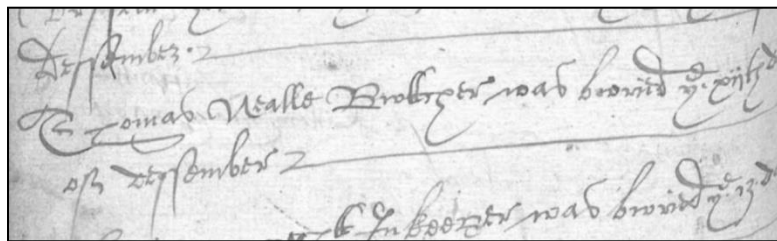 dessember
Thomas Nealle Butcher was buried ye xiith d
of dessember
Inkeeper was buried ye 13 d